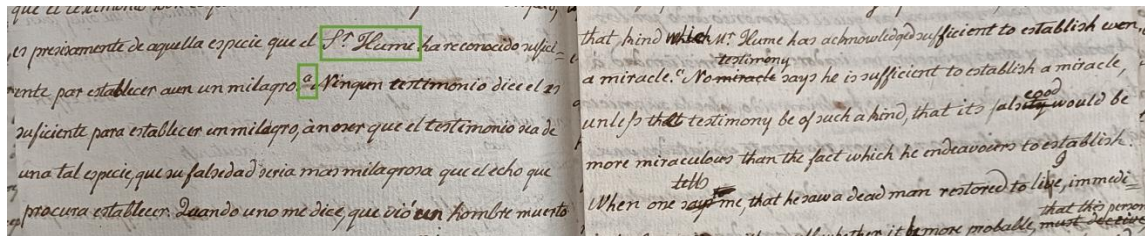 es presisamente de aquella especie que el Sr. Hume ha reconocido sufici=
ente par establecer aun un milagro.a Ningun testimonio dice el es
suficiente para establecer un milagro, à no ser que el testimonio sea de
una tal especie, que su falsedad seria mas milagrosa que el echo que
procura establecer. Quando uno me dice, que vió un hombre muerto
that kind which Mr. Hume has acknowledged sufficient to establish even
testimony
a miracle.a No miracle says he is sufficient to establish a miracle,
unless that testimony be of such a kind, that its falsity would be
more miraculous than the fact which he endeavours to establish.
tells
When one says me, that he saw a dead man restored to life, immedi-
that this person
whether it be more probable, must deceive